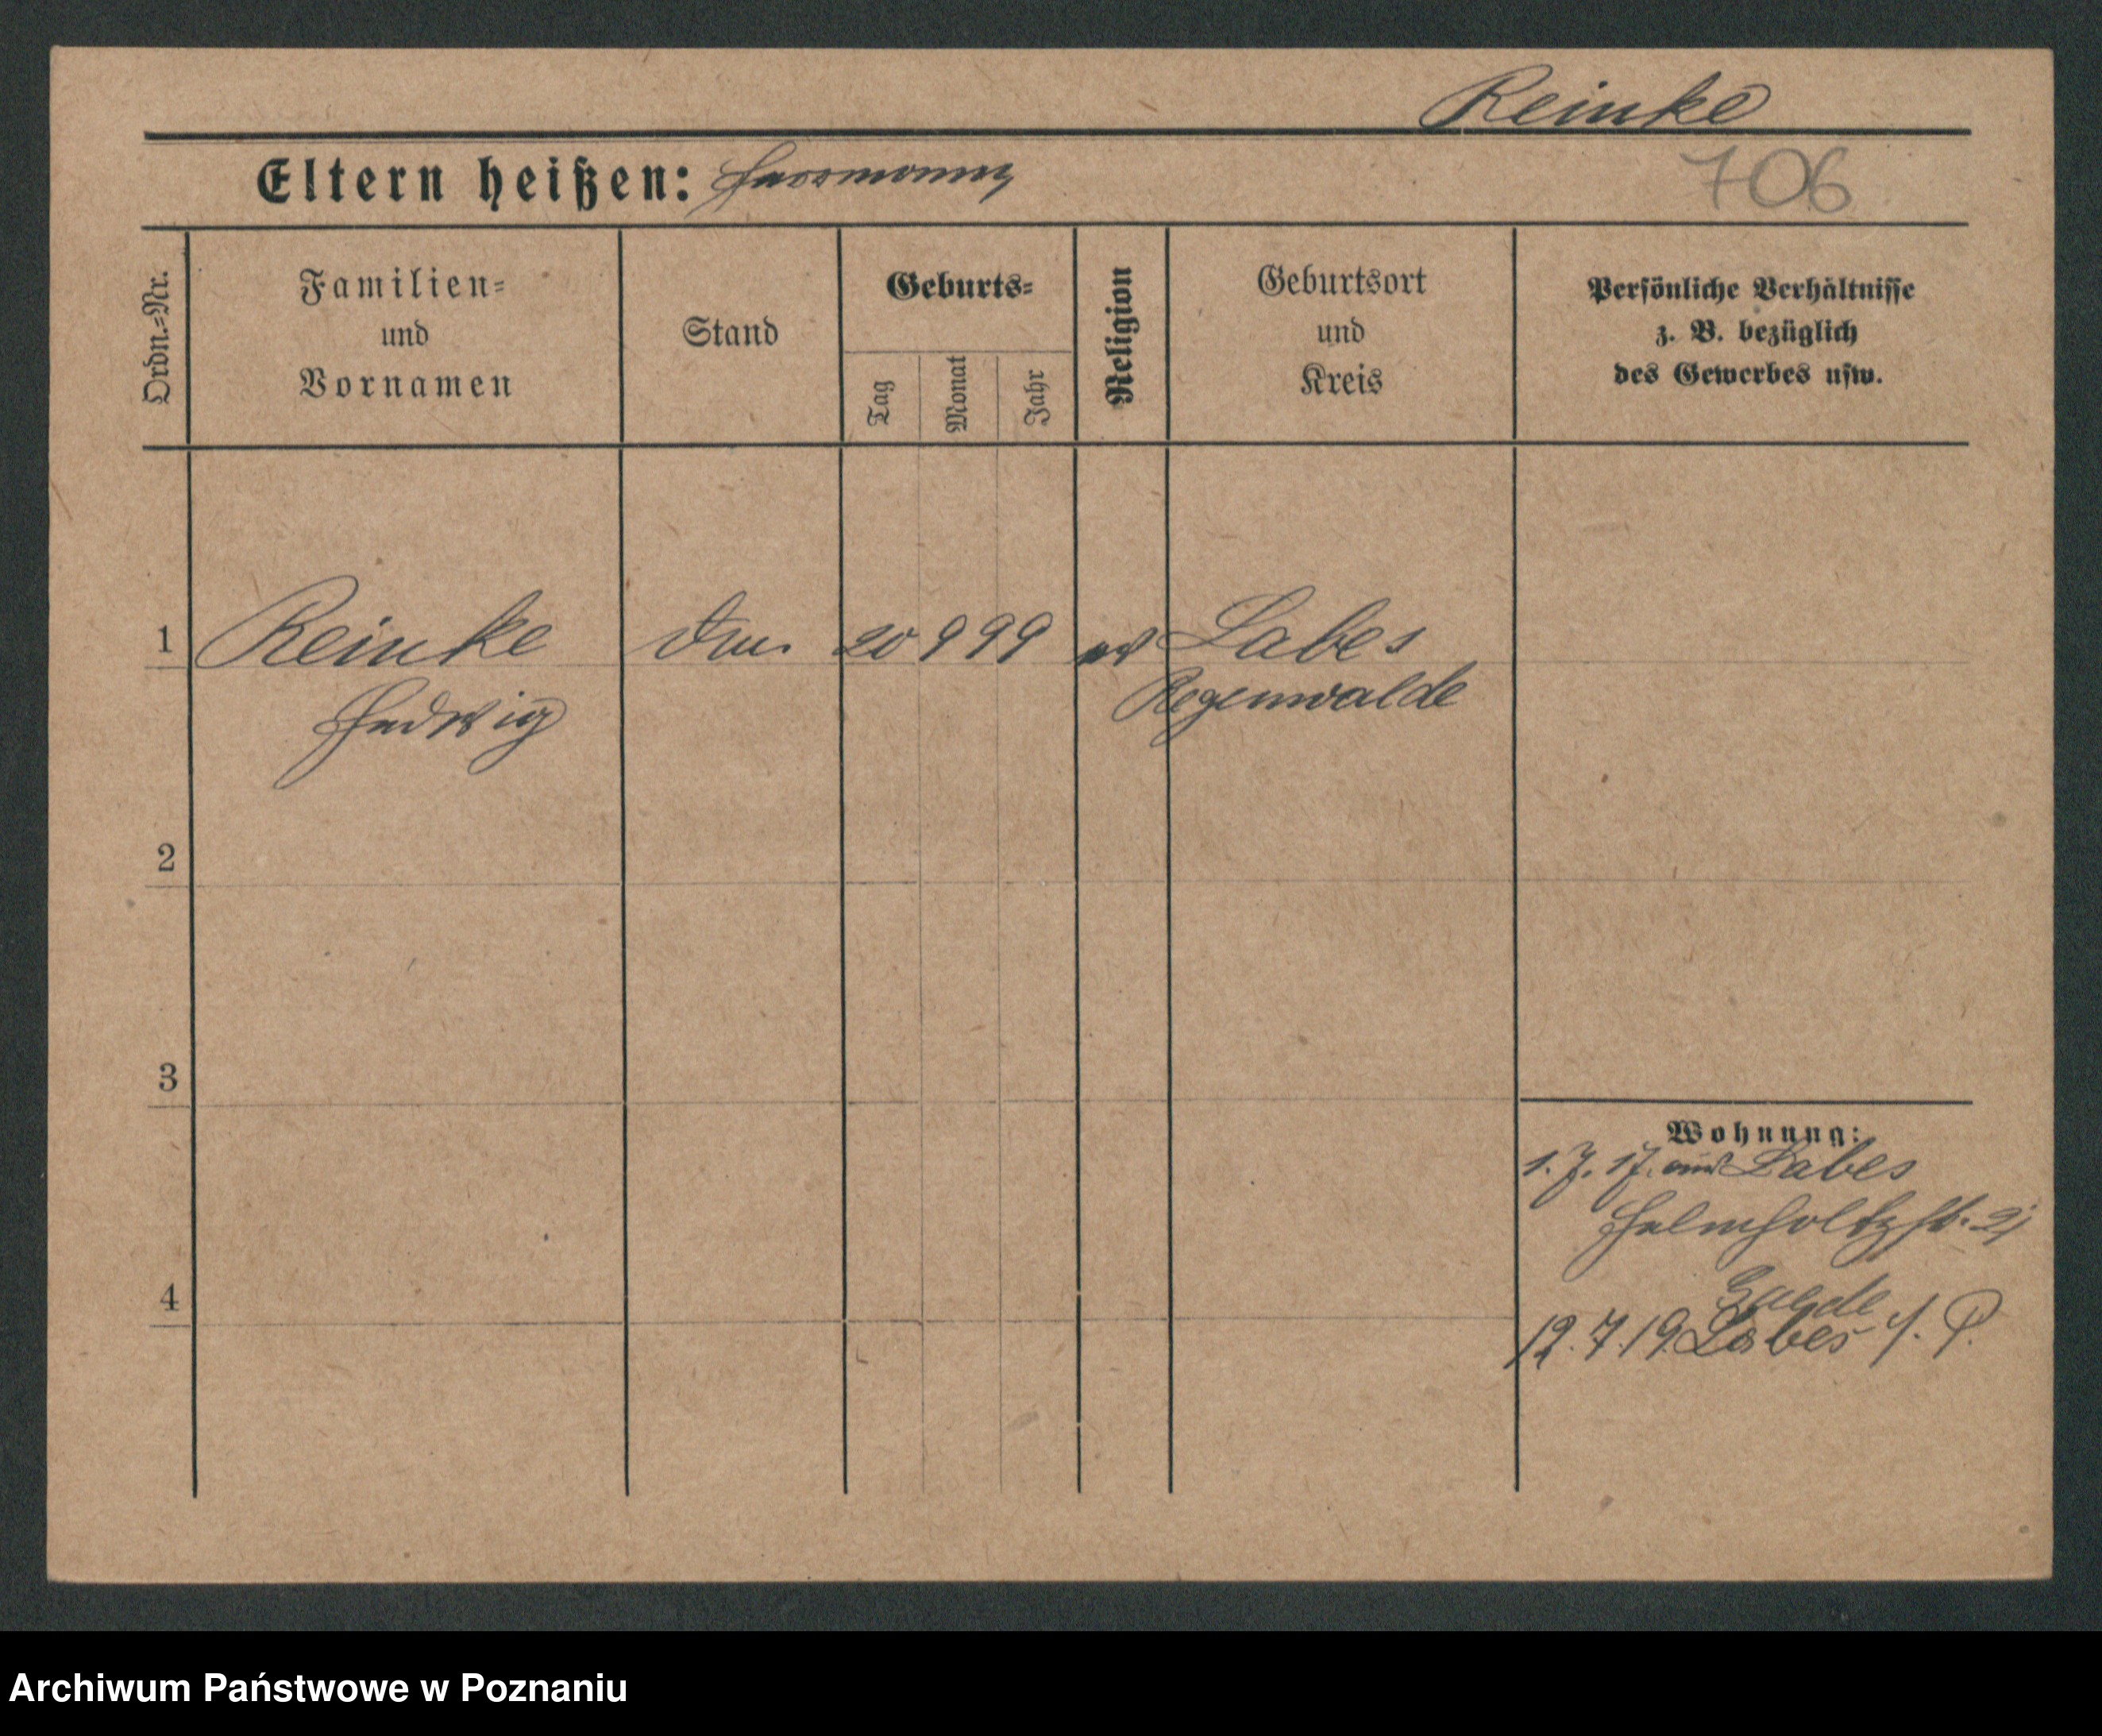 Reinke
Eltern heißen: Hermann
706
Ordn.-Nr.
Familien-
und
Vornamen
Stand
Geburts-
Tag
Monat
Jahr
Religion
Geburtsort
und
Kreis
Persönliche Verhältnisse
z. B. bezüglich
des Gewerbes usw.
1 Reinke 20 9 99 ev Labes
Hedwig Regenwalde
2
3
4
Wohnung:
1. 7. 17. aus Labes
Helmholtzstr. 2
12. 7. 19. Labes i. P.
Archiwum Państwowe w Poznaniu